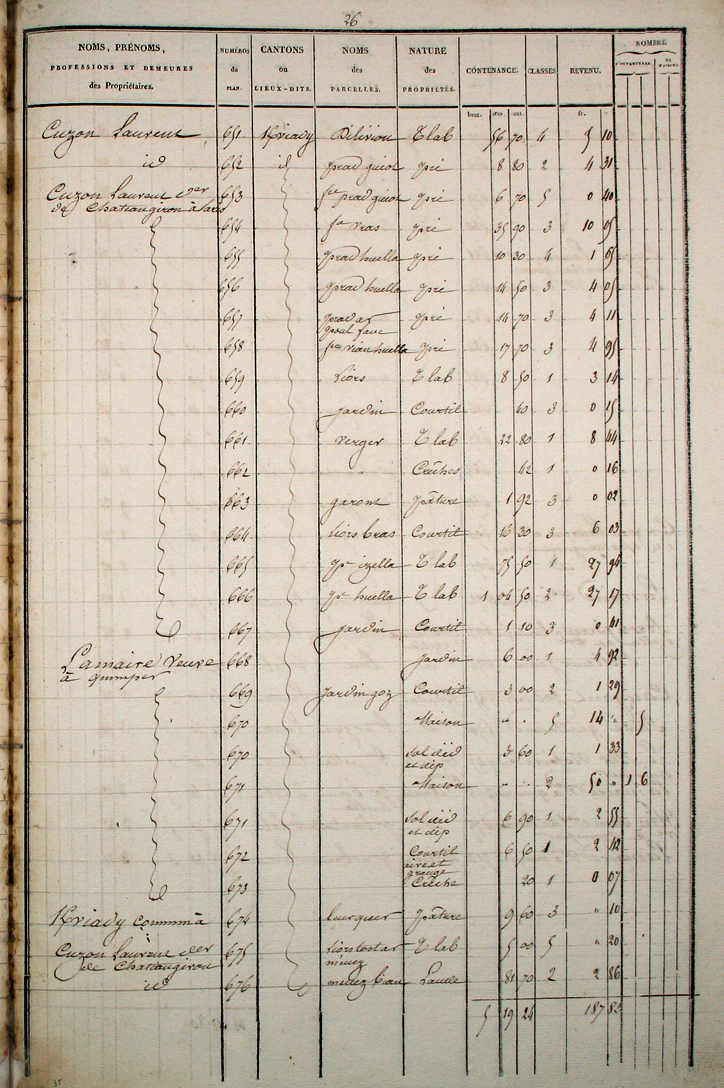 26
NOMS, PRÉNOMS, PROFESSIONS ET DEMEURES des Propriétaires. NUMÉROS du PLAN. CANTONS ou LIEUX-DITS. NOMS des PARCELLES. NATURE des PROPRIÉTÉS. CONTENANCE. CLASSES REVENU. NOMBRE D'OUVERTURES. DE MAISONS.
hect. ares cent. fr. c.
Cuzon Laurent 651 Kriady Dilivion T lab 56 70 4 5 10
id 652 id prad guiol pré 8 80 2 4 31
Cuzon Laurent 653 prad guiol pré 6 70 5 0 40
de Chateaugiron à
654 vras pré 35 90 3 10 05
655 prad huella pré 10 30 4 1 65
656 prad huella pré 14 50 3 4 05
657 prad ar pré 14 70 3 4 11
658 huella pré 17 70 3 4 95
659 liors T lab 8 50 1 3 14
660 jardin Courtil 40 3 0 15
661 verger T lab 22 80 1 8 44
662 " Crêches 42 1 0 16
663 garont pâture 1 92 3 0 02
664 liors bras Courtil 16 30 3 6 03
665 izella T lab 75 50 1 27 94
666 huella T lab 1 04 50 2 27 17
667 jardin Courtil 1 10 3 0 41
Lamaire Veuve 668 jardin 6 00 1 4 92
à quimper
669 jardin goz Courtil 3 00 2 1 29
670 Maison " " 5 14 " 5
670 sol dud 3 60 1 1 33
et dép
671 Maison " " 2 50 " 1 6
671 sol dud 6 90 1 2 55
et dép
672 Courtil 6 50 1 2 42
aire et
grange
673 Crêche 20 1 0 07
Kriady commun à 674 pâture 9 60 3 " 10
Cuzon Laurent 675 liors lostar T lab 5 00 5 " 20
de Chateaugiron menez
id 676 menez bian Lande 81 70 2 2 86
5 19 24 187 83